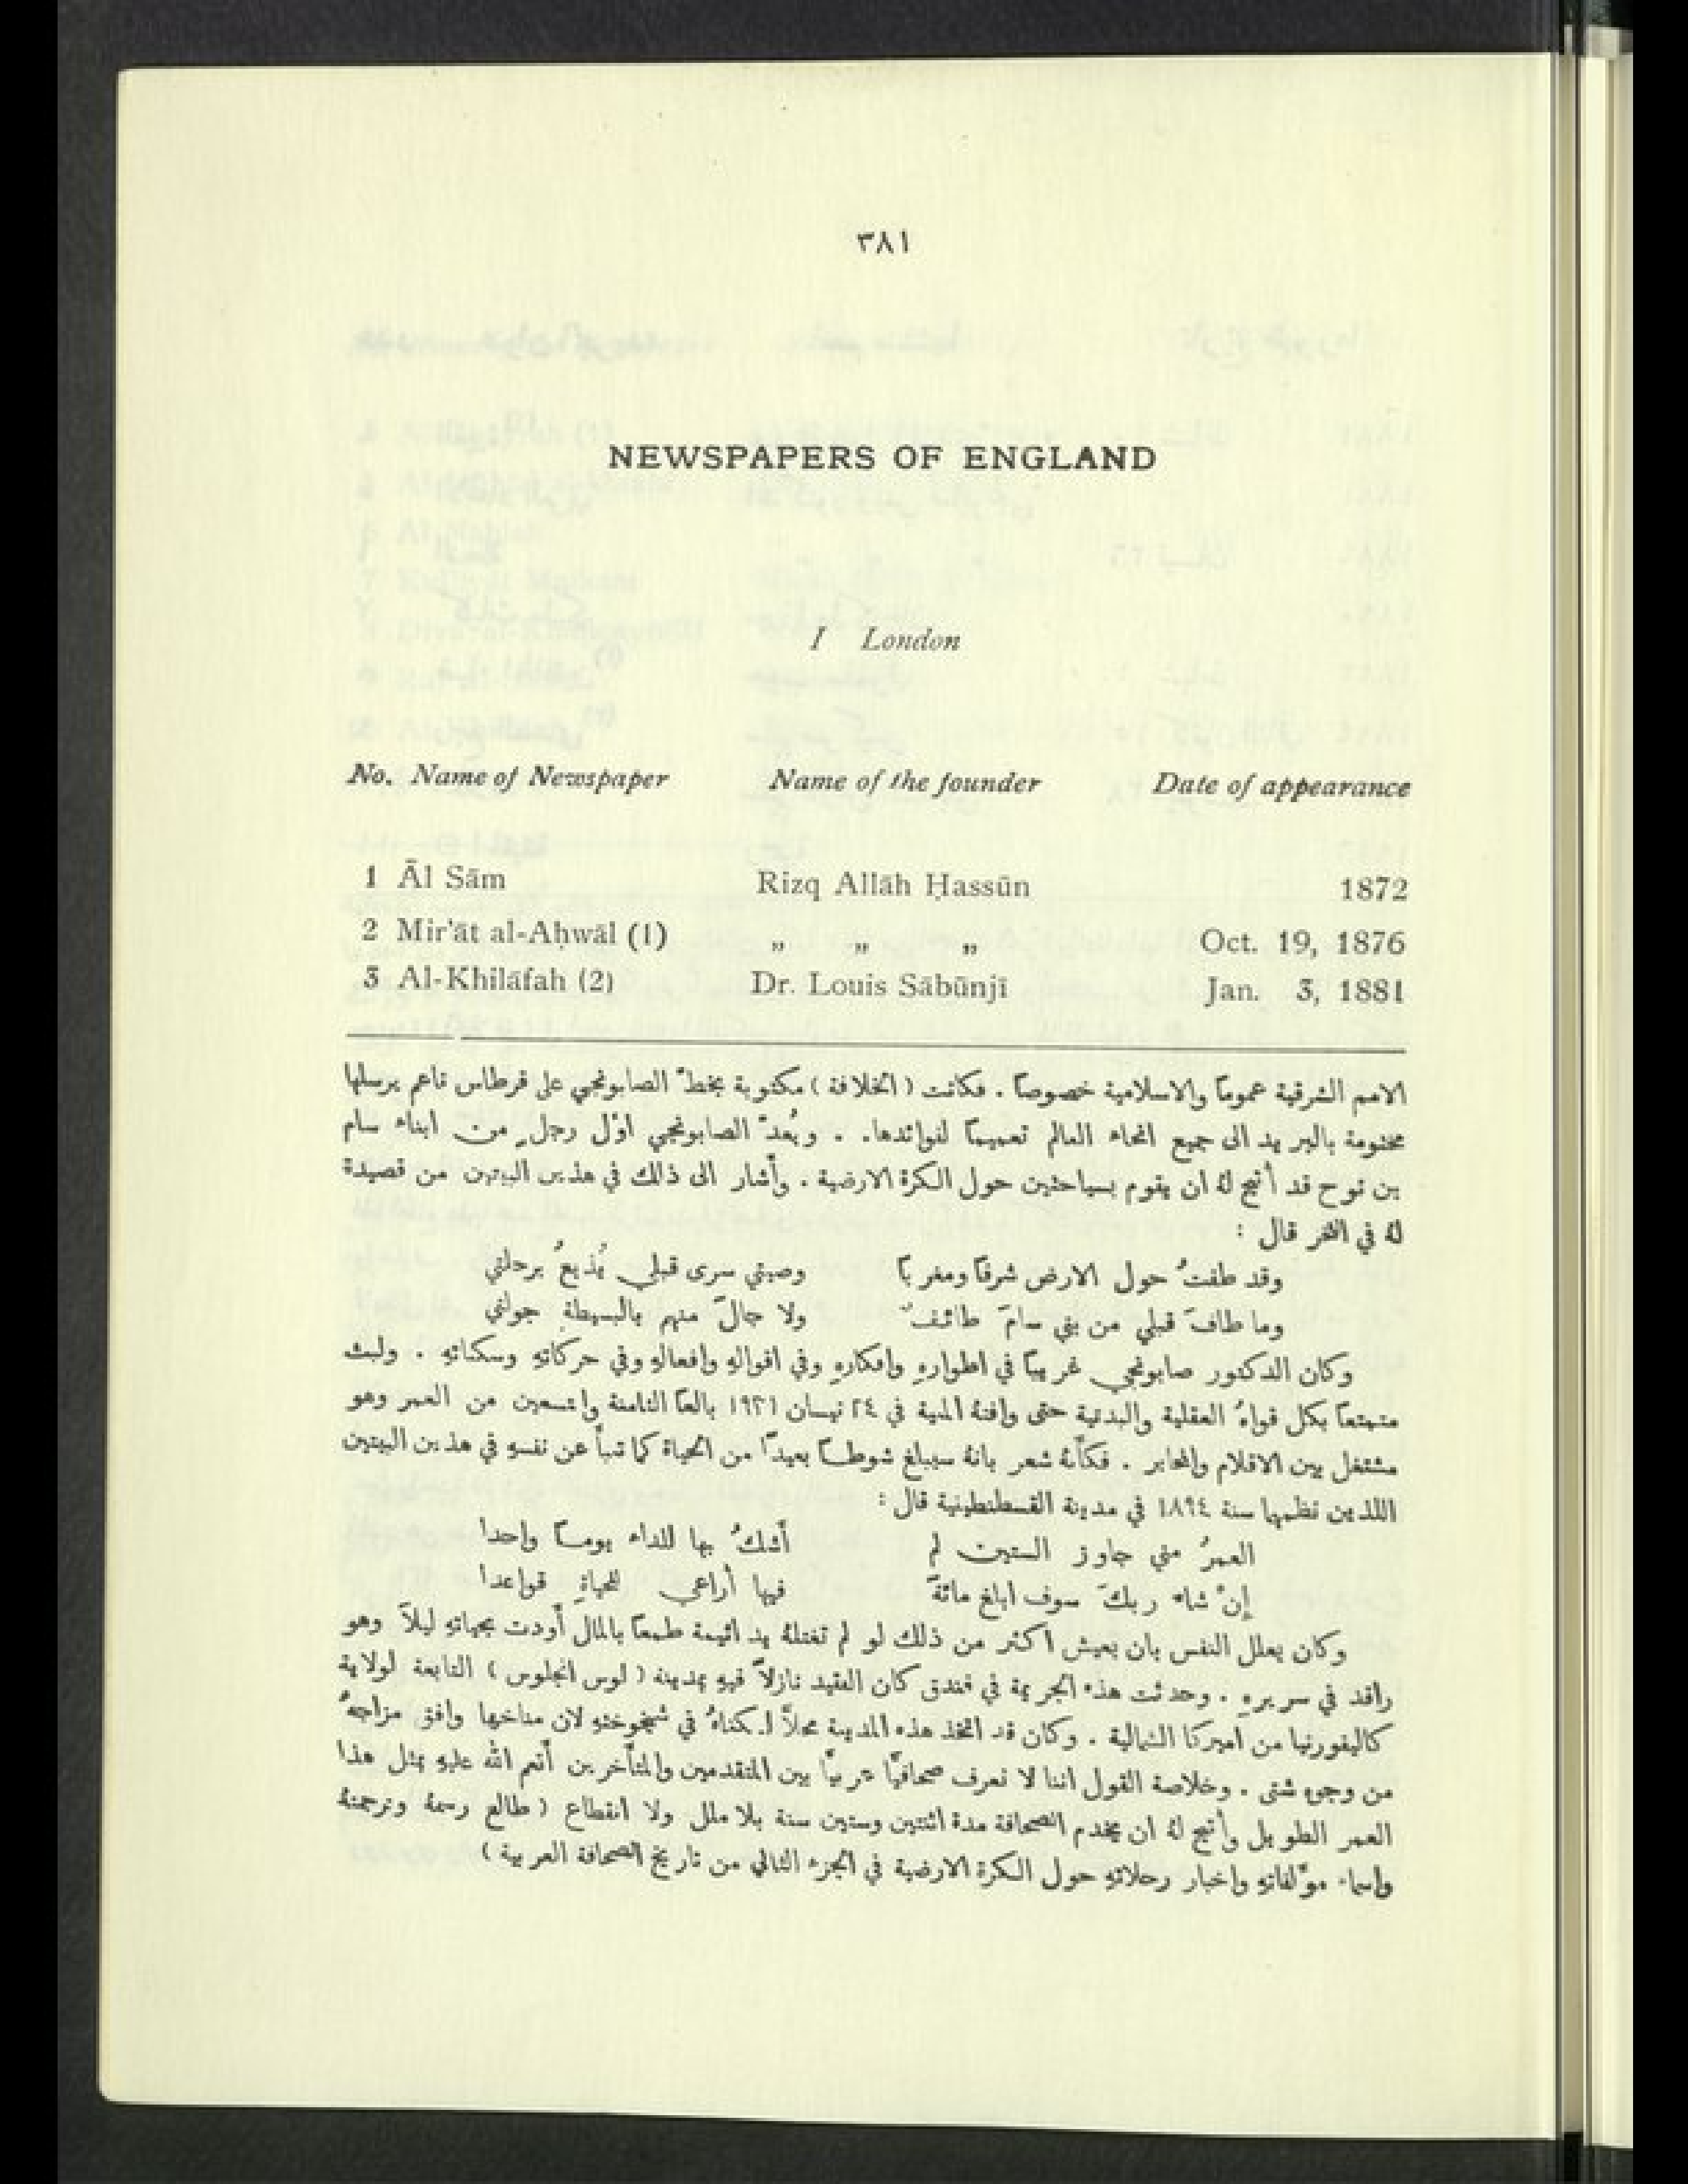 ٣٨١
NEWSPAPERS OF ENGLAND
I London
No. Name of Newspaper Name of the founder Date of appearance
1 Āl Sām Rizq Allāh Ḥassūn 1872
2 Mir'āt al-Aḥwāl (1) „ „ „ Oct. 19, 1876
3 Al-Khilāfah (2) Dr. Louis Sābūnjī Jan. 3, 1881
الامم الشرقية عموماً والاسلامية خصوصاً . فكانت (الخلافة) مكتوبة بخطّ الصابونجي على قرطاس ناعم يرسلها
مختومة بالبريد الى جميع انحاء العالم تعميماً لفوائدها . ويُعدّ الصابونجي اوّل رجلٍ من ابناء سام
بن نوح قد أُتيح لهُ ان يقوم بسياحتين حول الكرة الارضية . وأشار الى ذلك في هذين البيتين من قصيدة
لهُ في الفخر قال :
وقد طفتُ حول الارض شرقاً ومغرباً وصيتي سرى قبلي يُذيعُ برحلتي
وما طافَ قبلي من بني سامَ طائفٌ ولا جالَ منهم بالبسيطةِ جولتي
وكان الدكتور صابونجي غريباً في اطوارهِ وافكارهِ وفي اقوالهِ وافعالهِ وفي حركاتهِ وسكناتهِ . ولبث
متمتعاً بكل قواهُ العقلية والبدنية حتى وافتهُ المنية في ٢٤ نيسان ١٩٣١ بالغاً الثامنة والتسعين من العمر وهو
مشتغل بين الاقلام والمحابر . فكأنهُ شعر بانهُ سيبلغ شوطاً بعيداً من الحياة كما تنبأ عن نفسهِ في هذين البيتين
اللذين نظمها سنة ١٨٩٤ في مدينة القسطنطينية قال :
العمرُ مني جاوز الستين لم أشكُ بها للداء يوماً واحدا
إنْ شاء ربكَ سوف ابلغ مائةً فيها أراعي للحياةِ قواعدا
وكان يعلل النفس بان يعيش اكثر من ذلك لو لم تقتلهُ يد اثيمة طمعاً بالمال أودت بحياتهِ ليلاً وهو
راقد في سريرهِ . وحدثت هذه الجريمة في فندق كان الفقيد نازلاً فيهِ بمدينة (لوس انجلوس) التابعة لولاية
كاليفورنيا من اميركا الشمالية . وكان قد اتخذ هذه المدينة محلاً لسكناهُ في شيخوختهِ لان مناخها وافق مزاجهُ
من وجوه شتى . وخلاصة القول اننا لا نعرف صحافيّاً عربيّاً بين المتقدمين والمتأخرين أنعم الله عليهِ بمثل هذا
العمر الطويل وأُتيح لهُ ان يخدم الصحافة مدة اثنتين وستين سنة بلا ملل ولا انقطاع (طالع رسمهُ وترجمتهُ
واسماء موّلفاتهِ واخبار رحلاتهِ حول الكرة الارضية في الجزء الثاني من تاريخ الصحافة العربية)